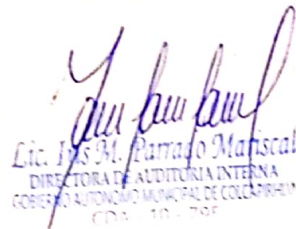 Lic. Iris M. Parrado Mariscal
DIRECTORA DE AUDITORIA INTERNA
GOBIERNO AUTONOMO MUNICIPAL DE COLCAPIRHUA